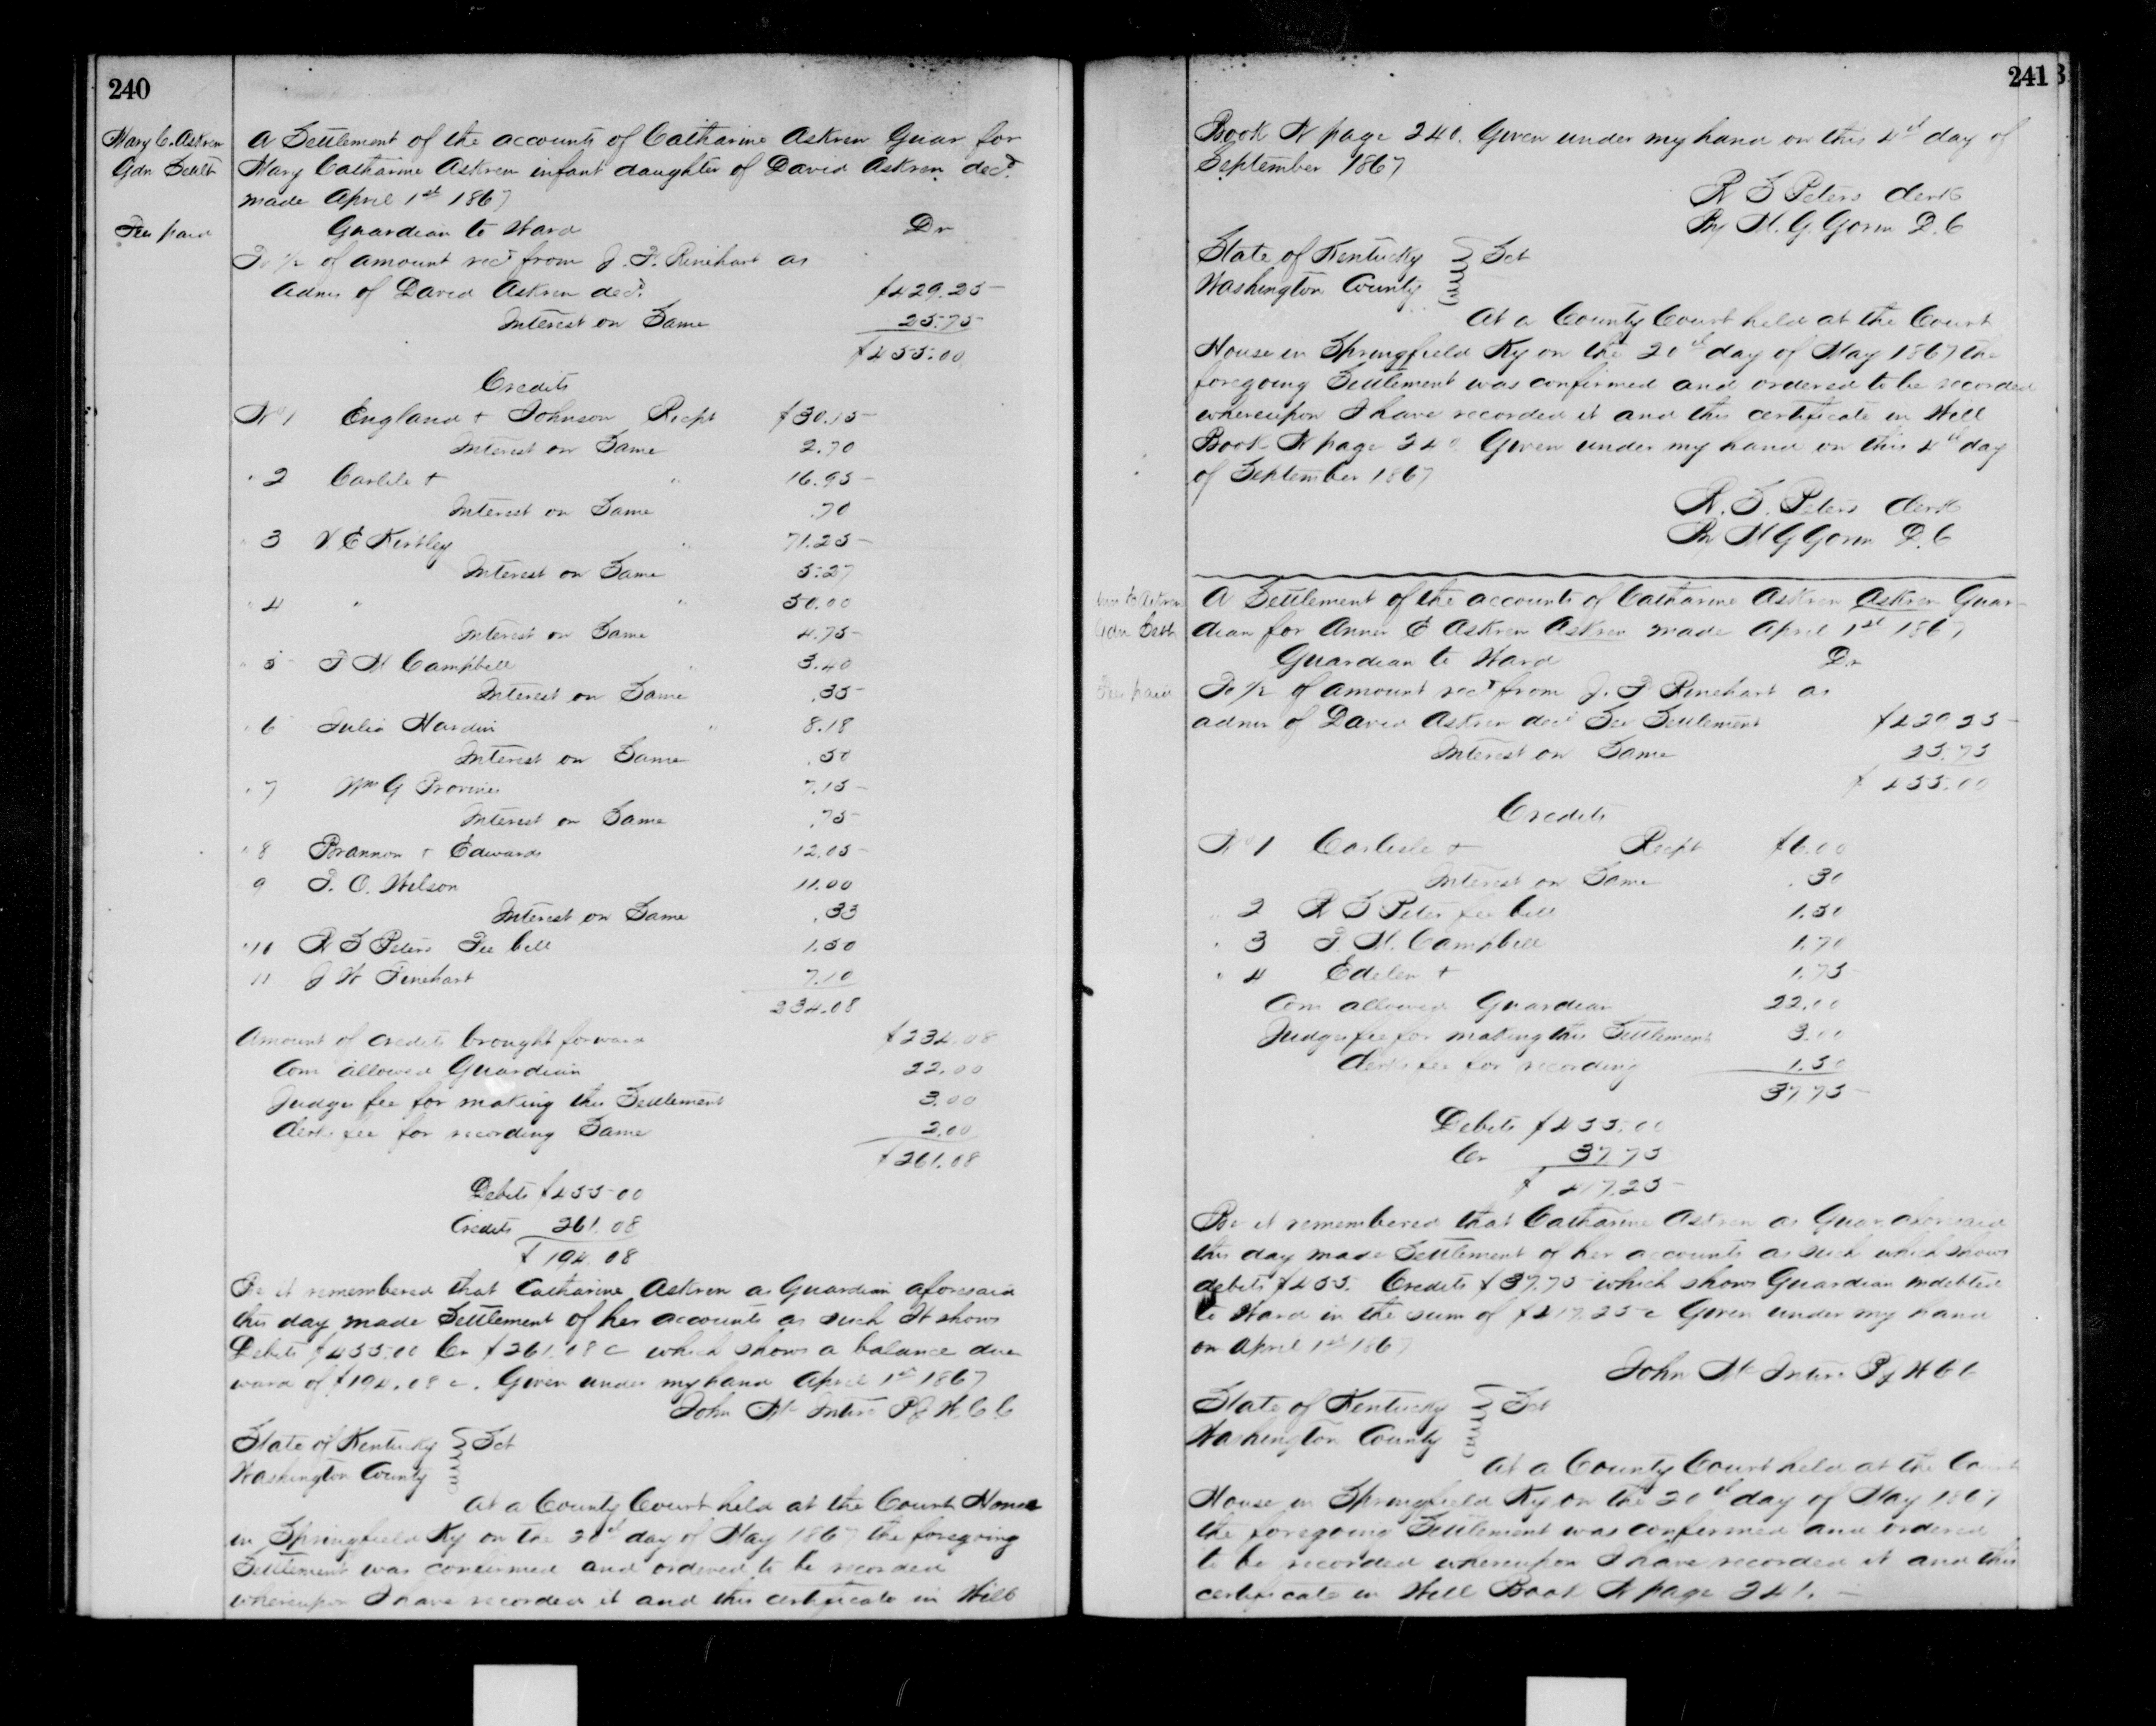 240
Mary C. Askren
Gdn Settlt
Fee paid
A Settlement of the accounts of Catharine Askren Guar for
Mary Catharine Askren infant daughter of David Askren decd.
made April 1st 1867
Guardian to Ward Dr
To 1/2 of amount recd from J. F. Rinehart as
Admr of David Askren decd. $429.25
Interest on Same 25.75
$455.00
Credits
No 1 England + Johnson Recpt $30.15
Interest on Same 2.70
" 2 Carlile + " 16.95
Interest on Same .70
" 3 V. E Kirtley " 71.25
Interest on Same 5.27
" 4 " " 50.00
Interest on Same 4.75
" 5 T M Campbell " 3.40
Interest on Same .35
" 6 Julia Hardin " 8.18
Interest on Same .50
" 7 Wm G Provines 7.15
Interest on Same .75
" 8 Brannon + Edwards 12.05
9 T. O. Wilson 11.00
Interest on Same .33
" 10 R S Peters Fee bill 1.50
11 J W Rinehart 7.10
234.08
Amount of credits brought forward $234.08
Com allowed Guardian 22.00
Judges fee for making this Settlement 3.00
Clerks fee for recording Same 2.00
$261.08
Debits $455.00
Credits 261.08
$194.08
Be it remembered that Catharine Askren as Guardian aforesaid
this day made Settlement of her accounts as such It shows
Debits $455.00 Cr $261.08 c which shows a balance due
ward of $194.08 c. Given under my hand April 1st 1867
John McIntire PJ W.C.C
State of Kentucky
Washington County Sct
At a County Court held at the Court House
in Springfield Ky on the 20th day of May 1867 the foregoing
Settlement was confirmed and ordered to be recorded
whereupon I have recorded it and this certificate in Will
241
Book N page 240. Given under my hand on this 4th day of
September 1867
R S Peters Clerk
By M. G. Gorin D.C
State of Kentucky
Washington County Sct
At a County Court held at the Court
House in Springfield Ky on the 20th day of May 1867 the
foregoing Settlement was confirmed and ordered to be recorded
whereupon I have recorded it and this certificate in Will
Book N page 240 Given under my hand on this 4th day
of September 1867
R. S. Peters Clerk
By M G Gorin D.C
E Askren
Gdn Settl
Fee paid
A Settlement of the accounts of Catharine Askren Askren Guar-
dian for Anner E Askren Askren made April 1st 1867
Guardian to Ward Dr
To 1/2 of amount recd from J. F Rinehart as
admr of David Askren decd See Settlement $429.25
Interest on Same 25.75
$455.00
Credits
No 1 Carlisle + Recpt $6.00
Interest on Same .30
" 2 R S Peters fee bill 1.50
" 3 T. M. Campbell 1.70
" 4 Edelen + 1.75
Com allowed Guardian 22.00
Judges fee for making this Settlement 3.00
Clerks fee for recording 1.50
37.75
Debits $455.00
Cr 37.75
$417.25
Be it remembered that Catharine Askren as Guar. aforesaid
this day made Settlement of her accounts as such which shows
debits $455. Credits $37.75 which shows Guardian indebted
to Ward in the sum of $417.25 c Given under my hand
on April 1st 1867
John McIntire PJ W C C
State of Kentucky
Washington County Sct
At a County Court held at the Court
House in Springfield Ky on the 20th day of May 1867
the foregoing Settlement was confirmed and ordered
to be recorded whereupon I have recorded it and this
certificate in Will Book N page 241.